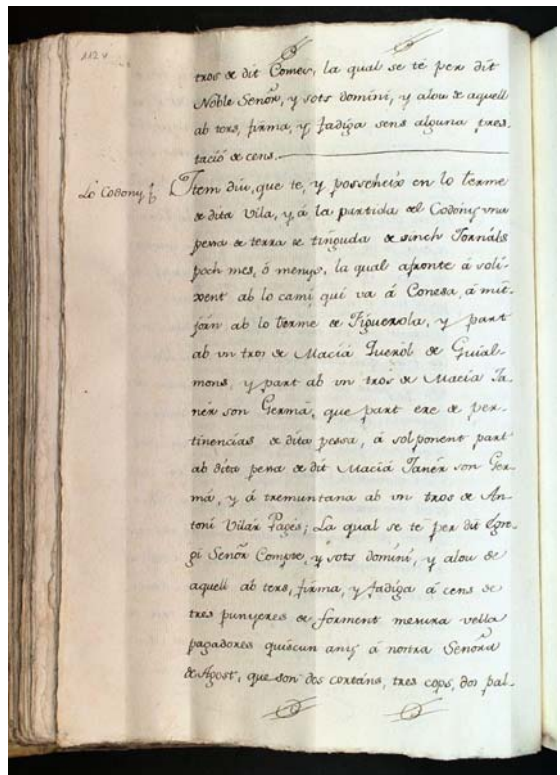 112 v
tros de dit Comes, la qual se té per dit
Noble Señor, y sots domini, y alou de aquell
ab tors, firma, y fadiga sens alguna pres-
tació de cens.
Lo Codony Item diu, que te, y posseheix en lo terme
de dita Vila, y, á la partida del Codony una
pessa de terra de tinguda de sinch Jornáls
poch mes, ó menys, la qual afronte á soli-
xent ab lo camí qui va á Conesa, á mit-
jorn ab lo terme de Figuerola, y part
ab un tros de Maciá Queròl de Guial-
mons, y part ab un tros de Maciá Ja-
nér son Germá, que part ere de per-
tinencias de dita pessa, á sol ponent part
ab dita pessa de dit Maciá Janér son Ger-
má, y á tremuntana ab un tros de An-
toni Vilár Pagés; La qual se té per dit Egre-
gi Señor Compte, y sots domini, y alou de
aquell ab ters, firma, y fadiga á cens de
tres punyeres de forment mesura vella
pagadores quiscun any á nostra Señora
de Agost, que son dos cortáns, tres cops, dos pal-